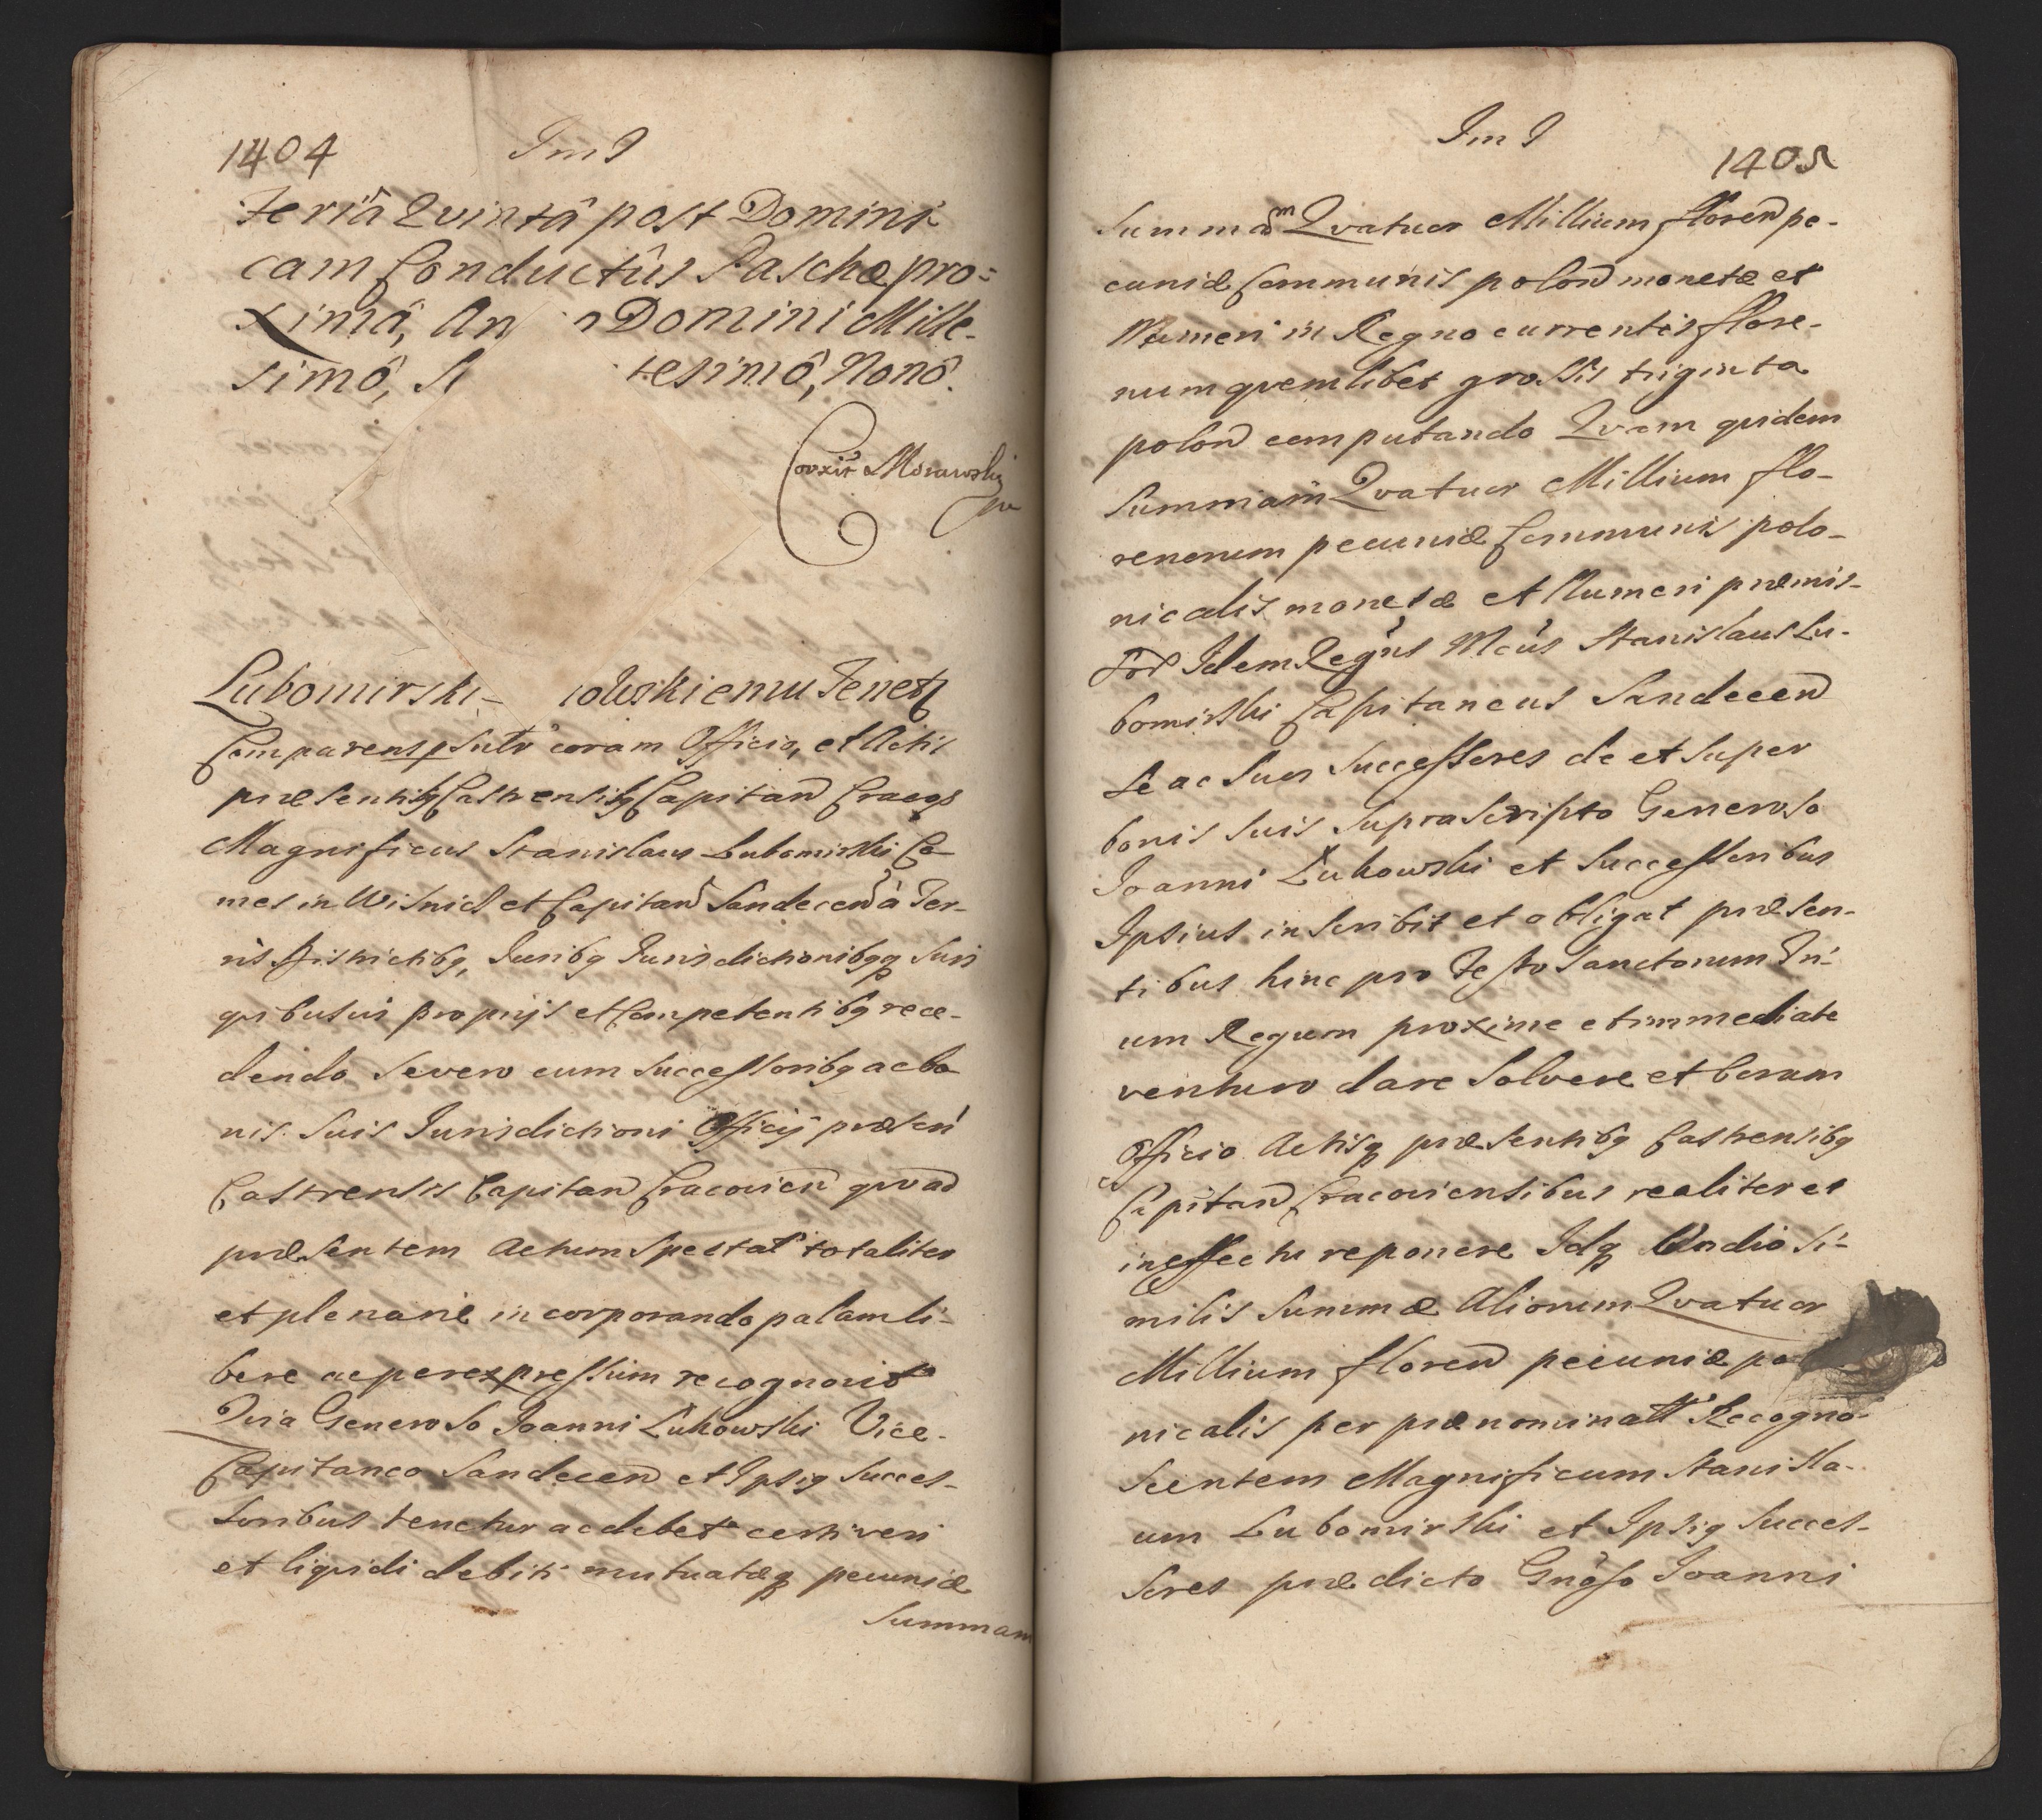 1404 Im I
Feriâ Qvintâ post Domini-
cam Conductûs Paschæ pro=
ximâ, An o Domini Mille-
simô, S tesimô, Nonô.
Corxit Morawski
mp
Lubomirski- kowskiemu Tenetz
Comparens psnlr coram Officio, et Actis
præsentibq Castrensibq Capitan Cracoq
Magnificus Stanislaus Lubomirski Co-
mes in Wisnicz et Capitan Sandecen à Ter-
ris Districtibq, Juribq Jurisdictionibqq suis
qvibusvis proprijs et Competentibq rece-
dendo Severo cum Successoribq ac bo
nis suis Jurisdictioni Officij præsen
Castrensis Capitan Cracovien qvoad
præsentem Actum spectat totaliter
et plenarie incorporando palam li-
bere ac per expressum recognovit
Qvia Generoso Joanni Łukowski Vice-
Capitaneo Sandecen et Ipsiq Succes-
soribus tenetur ac debet certi veri
et liqvidi debiti mutuatæq pecuniæ
Summam
Im I 1405
Summam Qvatuor Millium floren pe-
cuniæ Communis polon monetæ et
Numeri in Regno currentis flore-
num qvemlibet grossis triginta
polon computando Qvam qvidem
Summam Qvatuor Millium flo-
renorum pecuniæ Communis polo-
nicalis monetæ et Numeri præmis-
sor Idem Regns Mcus Stanislaus Lu-
bomirski Capitaneus Sandecen
se ac suos Successores de et super
bonis suis suprascripto Generoso
Joanni Łukowski et Successoribus
Ipsius inscribit et obligat præsen-
tibus hinc pro Festo Sanctorum Tri-
um Regum proxime et immediate
venturo dare solvere et coram
Officio Actisq præsentibq Castrensibq
Capitan Cracoviensibus realiter et
in effectu reponere Idq Vadio si-
milis Summæ Aliorum Qvatuor
Millium floren pecuniæ po
nicalis per prænominatt Recogno-
scentem Magnificum Stanisla-
um Lubomirski et Ipsiq Succes-
sores prædicto Gnoso Joanni